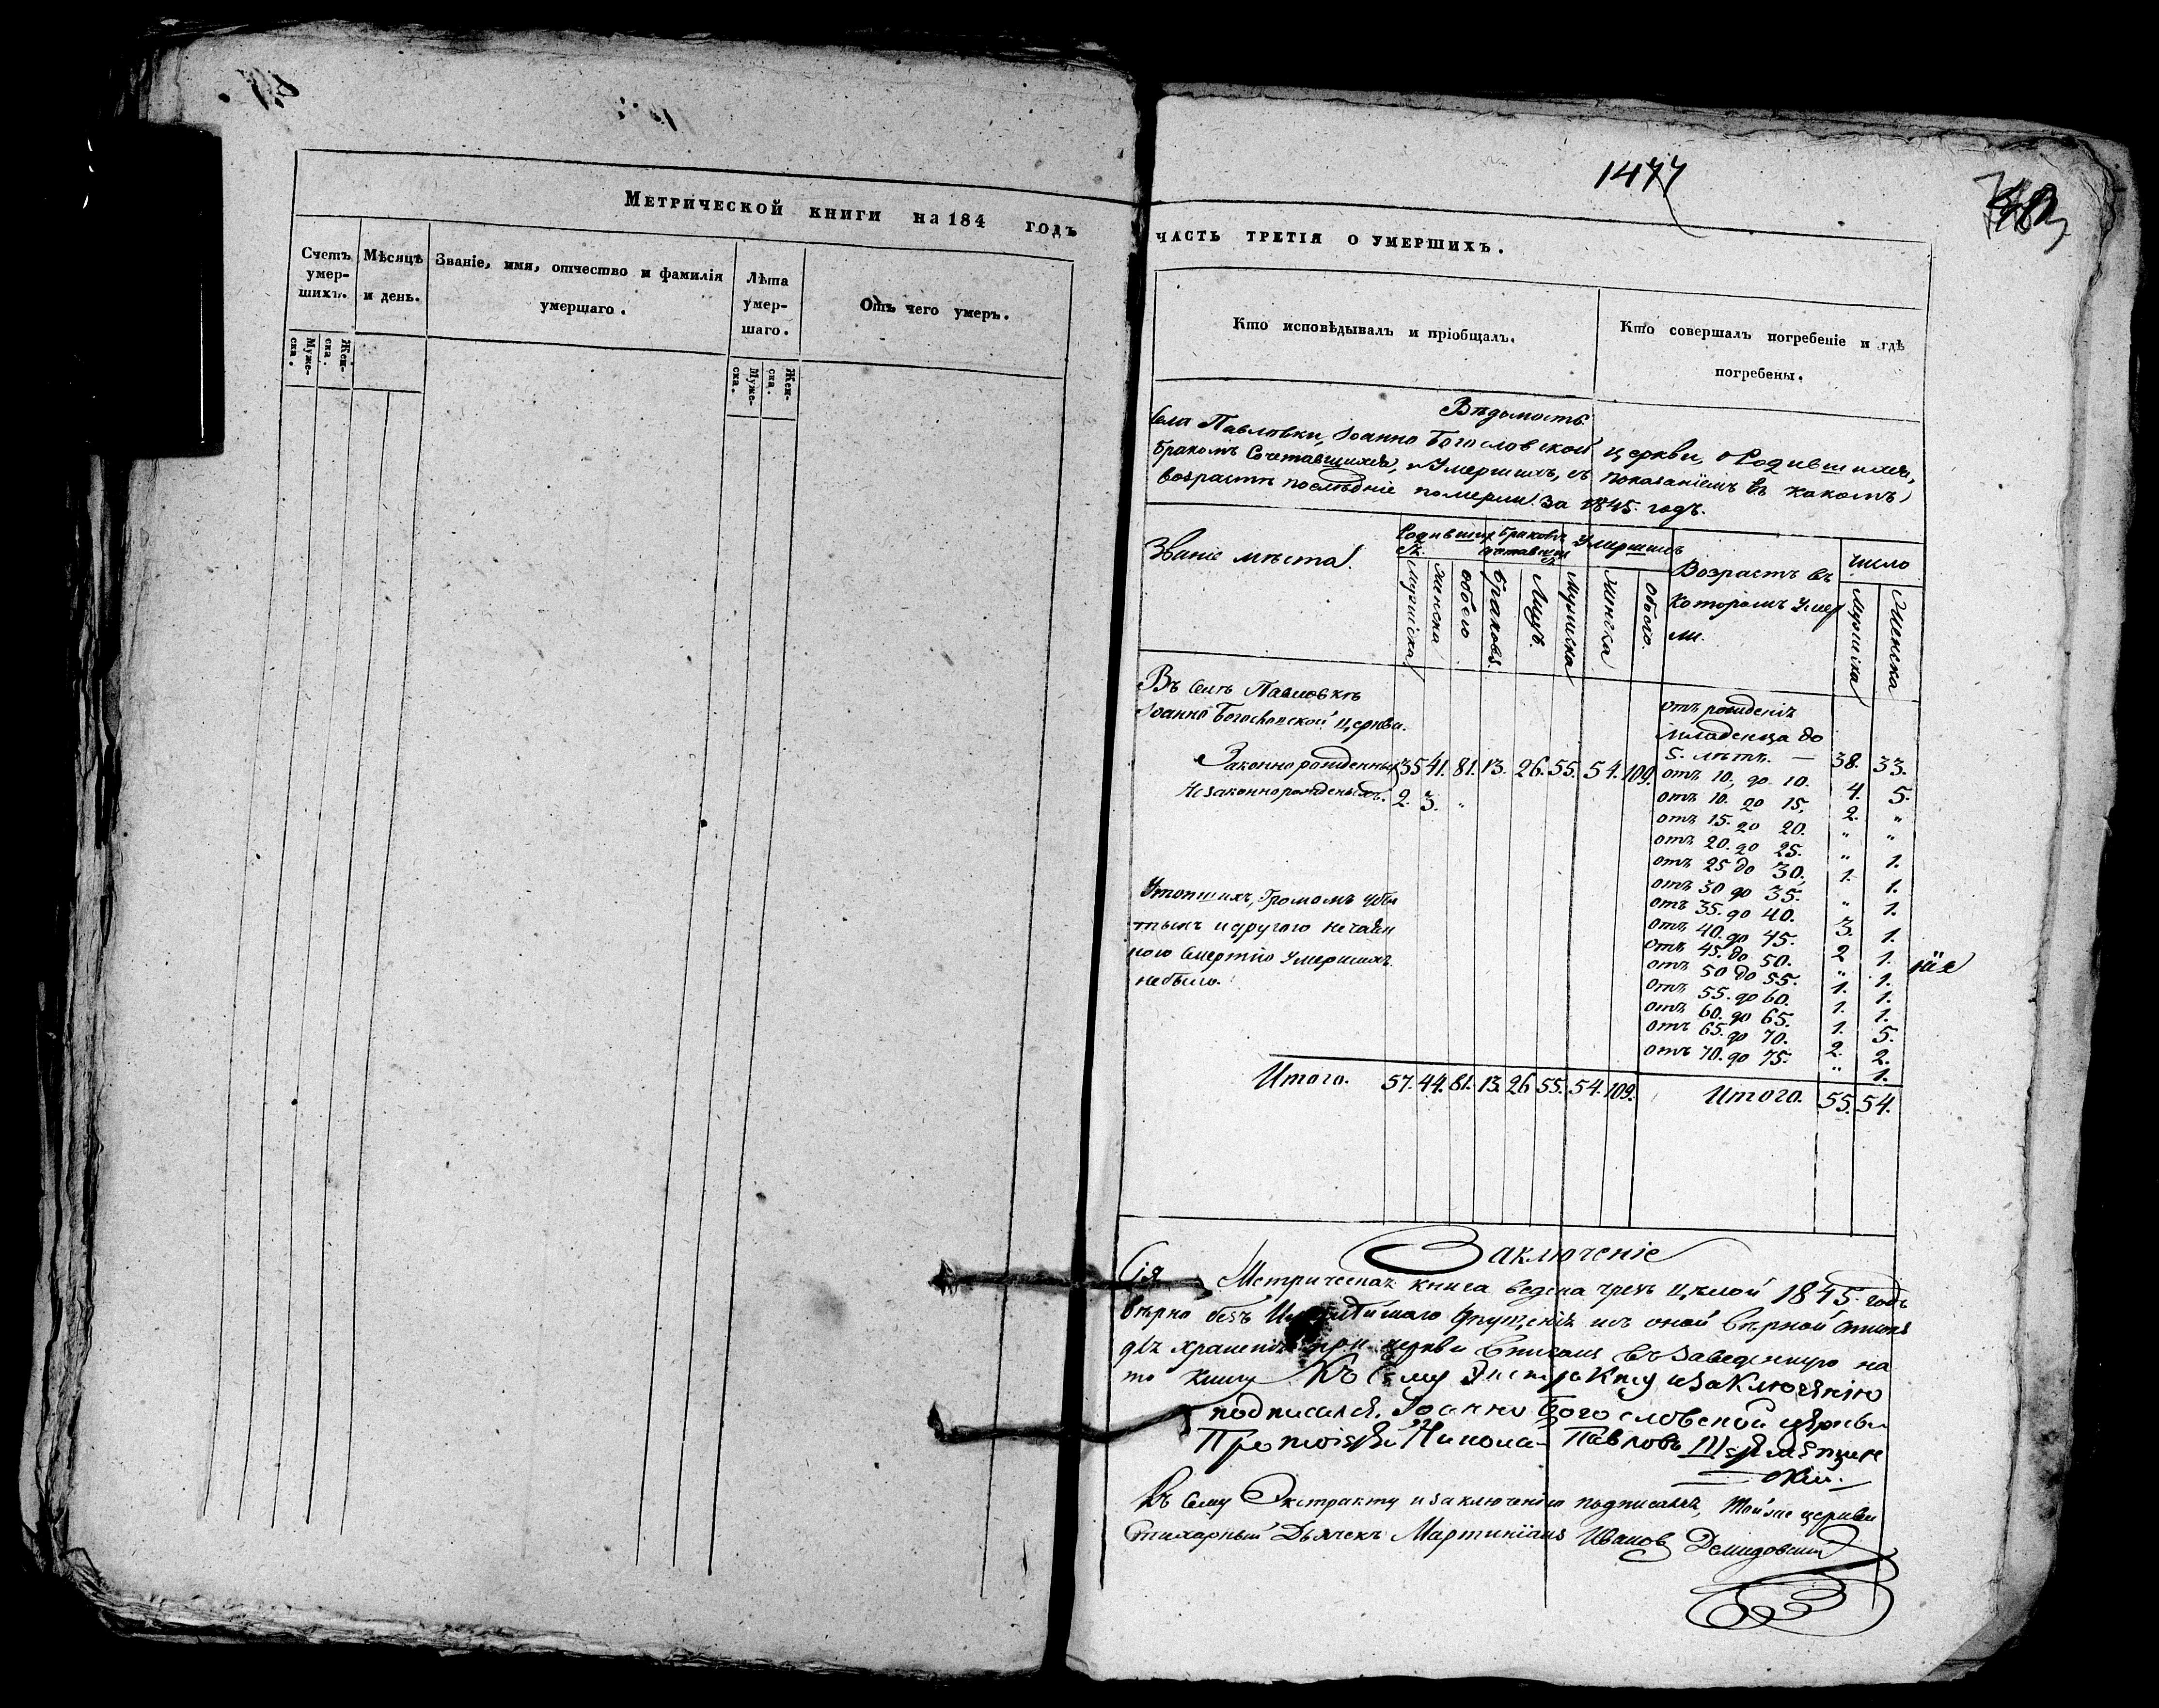 1477
Метрической книги на 184 годъ
Счетъ умер- шихъ.
Мѣсяцъ и день.
Званіе, имя, отчество и фамилія умершаго.
Лѣта умер- шаго.
Отъ чего умеръ.
Муже- ска.
Жен- ска.
Муже- ска.
Жен- ска.
часть третія о умершихъ.
Кто исповѣдывалъ и пріобщалъ.
Кто совершалъ погребеніе и гдѣ погребены.
Вѣдомость
села Павловки, Іоанно Богословской церкви, о Родившихся,
бракомъ Сочетавшихся, и Умершихъ, съ показаніемъ въ какомъ
возрастѣ послѣдніе померли за 1845. годъ.
Званіе мѣста.
Родивших ся.
Браковъ
Умершихъ
Возрастъ въ
которомъ Умер
ли.
число
Мужеска
Женска
обоего
браковъ.
Лицъ.
Мужеска
Женска
Обоего.
Мужеска
Женска
Въ селѣ Павловкѣ
Іоанно Богословской церкви.
Законнорожденныхъ 35 41. 81. 13. 26. 55. 54. 109.
Незаконнорожденыхъ. 2. 3. "
Утопшихъ, Громомъ уби
тыхъ и другого нечаян
ною Смертію Умершихъ
небыло.
отъ рожденія
младенца до
5. лѣтъ. — 38. 33.
отъ 10, до 10. 4. 5.
отъ 10. до 15. 2. "
отъ 15. до 20. " "
отъ 20. до 25. " 1.
отъ 25 до 30. 1. 1.
отъ 30 до 35. " 1.
отъ 35. до 40. 3. 1.
отъ 40. до 45. 2 1.
отъ 45. до 50. " 1.
отъ 50 до 55. 1. 1.
отъ 55. до 60. 1. 1.
отъ 60. до 65. 1. 5.
отъ 65. до 70. 2. 2.
отъ 70. до 75. " 1.
Итого. 57. 44. 81. 13. 26 55. 54. 109.
Итого. 55. 54.
Заключеніе
Сія Метрическая книга ведена чрезъ цѣлой 1845. годъ
вѣрно безъ упущенія изъ оной вѣрной
для храненія при церкви въ заведенную на
то книгу Къ Сему Экстракту и заключенію
подписался. Іоанно Богословской церкви
Протоіерей Николай Павловъ
скій.
Къ Сему Экстракту и заключенію подписался, Той же церкви
Стихарный Дьячекъ Мартиніанъ Ивановъ Демидовскій